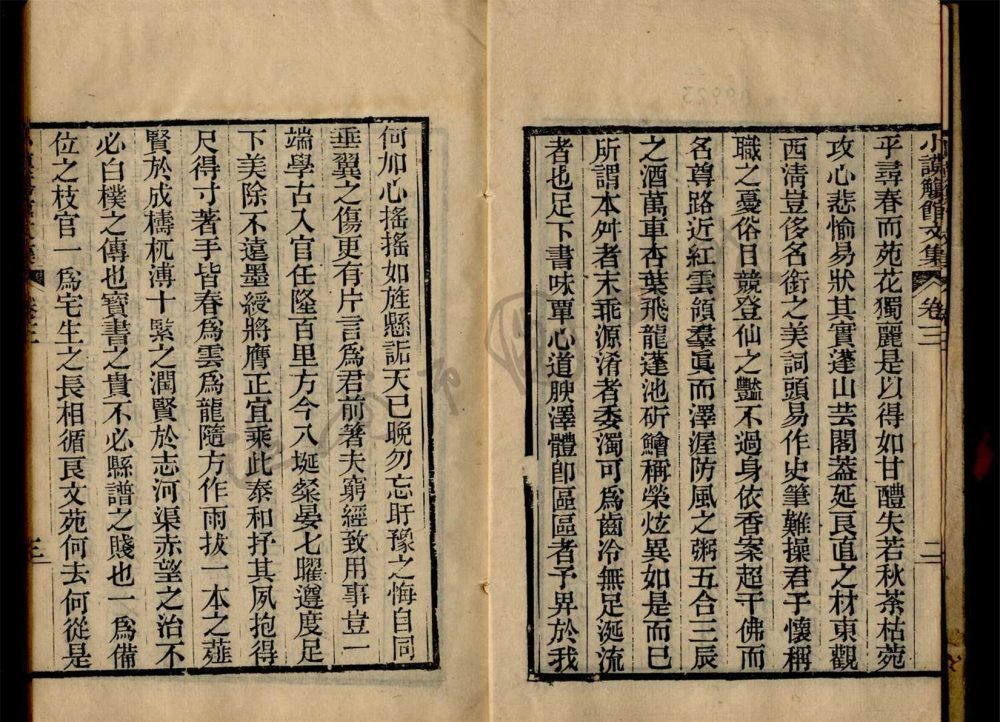 小謨觴館文集 卷三 二
乎尋春而苑花獨麗是以得如甘醴失若秋荼枯菀
攻心悲愉易狀其實蓬山芸閣葢延良直之材東觀
西清豈侈名銜之美詞頭易作史筆難操君子懷稱
職之憂俗日競登仙之豔不過身依香案超千佛而
名尊路近紅雲領羣眞而澤渥防風之粥五合三辰
之酒萬車杏葉飛龍蓬池斫鱠稱榮炫異如是而已
所謂本舛者末乖源淆者委濁可爲齒冷無足涎流
者也足下書味覃心道腴澤體卽區區者予畀於我
何加心搖搖如旌懸詬天已晚勿忘盱豫之悔自同
垂翼之傷更有片言爲君前箸夫窮經致用事豈一
端學古入官任隆百里方今八埏粲晏七曜遵度足
下美除不遠墨綬將膺正宜乘此泰和抒其夙抱得
尺得寸著手皆春爲雲爲龍隨方作雨拔一本之薤
賢於成檮杌溥十䋣之潤賢於志河渠赤望之治不
必白樸之傳也寶書之貴不必縣譜之賤也一爲備
位之枝官一爲宅生之長相循良文苑何去何從是
三